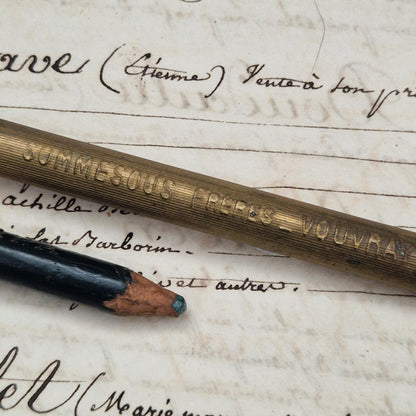 ave (Etienne) Vente à son
SOMMESOUS FRERES _ VOUVRAY
achille
Barborin.
et autres.
(Marie